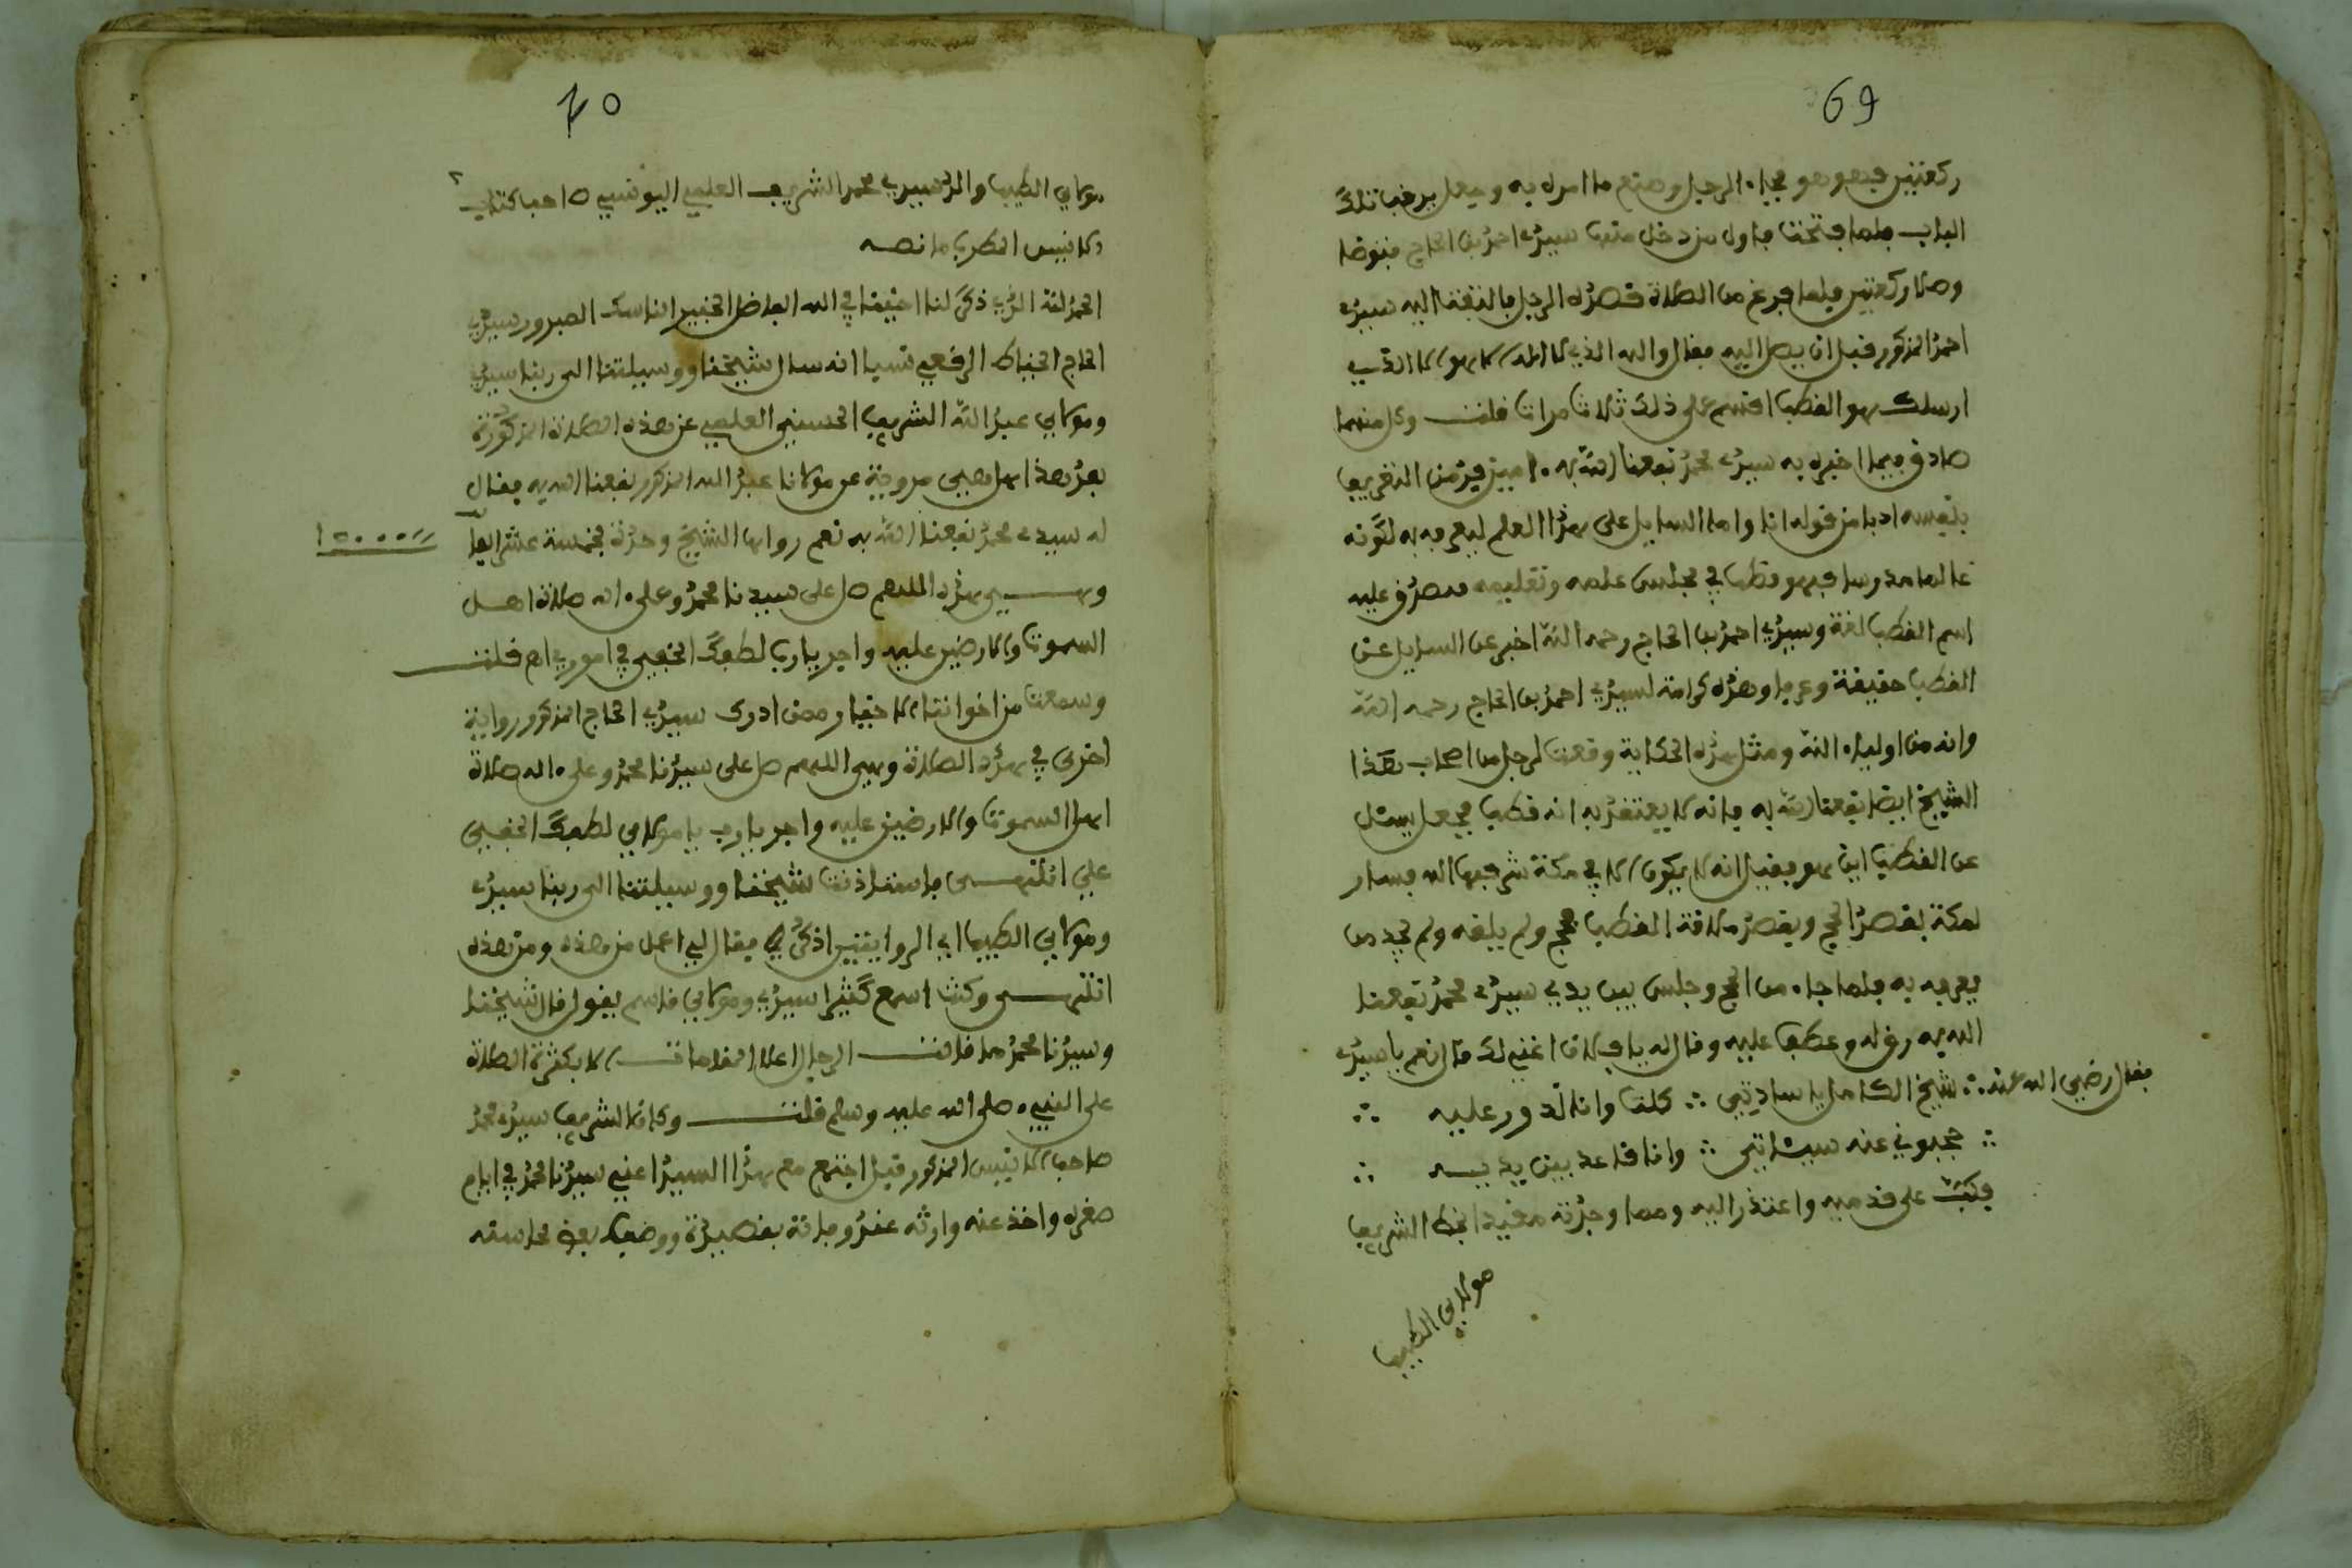 69
ركعتين فهو هو فجاء الرجل وصنع ما امره به وجعل يرقب تلك
الباب فلما فتحت فاول من دخل منها سيدي احمد بن الحاج فتوضا
وصلا ركعتين فلما فرغ من الصلاة قصده الرجل فالتفت اليه سيدي
احمد المذكور قبل ان يصل اليه فقال والله الذي لا اله الا هو الا الذي
ارسلك هو القطب اقسم على ذلك ثلاث مرات قلت وكل منهما
صادق فيما اخبر به سيدي محمد نفعنا الله به ءامين
بنفسه ادبا من قوله انا واما السايل على هذا العلم ليعرفه به لكونه
عالما مدرسا فهو قطب في مجلس علمه وتعليمه فصدق عليه
اسم القطب لغة وسيدي احمد بن الحاج رحمه الله اخبر عن السايل عن
القطب حقيقة وعرفا وهذه كرامة لسيدي احمد بن الحاج رحمه الله
وانه من اولياء الله ومثل هذه الحكاية وقعت لرجل من اصحاب هذا
الشيخ ايضا نفعنا الله به فانه لا يعتقد به انه قطب فجعل يسئل
عن القطب اين هو فقيل انه لا يكون الا في مكة شرفها الله فسار
لمكة بقصد الحج وبقصد ملاقة القطب فحج ولم يلقه ولم يجد من
يعرفه به فلما جاء من الحج وجلس بين يدي سيدي محمد نفعنا
الله به رق له وعطف عليه وقال له يا فلان اغني لك قال نعم يا سيدي
فقال رضي الله عنه ∴ شيخ الكامل يا سادتي ∴ كلت وانا ندور عليه ∴
∴ حجبوني عنه سيئاتي ∴ وانا قاعد بين يديه ∴
فكبّ على قدميه واعتذر اليه ومما وجدته مقيدا بخط الشريف
مولاي الطيب
70
مولاي الطيب والد سيدي محمد الشريف العلمي اليونسي صاحب كتاب
الانيس المطرب ما نصه
الحمد لله الذي ذكر لنا اخينا في الله الفاضل الخير الناسك المبرور سيدي
الحاج الخياط الرقعي نسبا انه سال شيخنا ووسيلتنا الى ربنا سيدي
ومولاي عبد الله الشريف الحسني العلمي عن هذه الصلاة المذكورة
بعد هذا هل هي مروية عن مولانا عبد الله المذكور نفعنا الله به فقال
له سيدي محمد نفعنا الله به نعم رواها الشيخ وحده بخمسة عشر الفا
15000
وهي هذه اللهم صل على سيدنا محمد وعلى ءاله صلاة اهل
السموات والارضين عليه واجر يا رب لطفك الخفي في اموري اه قلت
وسمعت من اخواننا الاحقا ومن ادرك سيدي الحاج المذكور رواية
اخرى في هذه الصلاة وهي اللهم صل على سيدنا محمد وعلى ءاله صلاة
اهل السموات والارضين عليه واجر يا رب يا مولاي لطفك الخفي
علي انتهى فاستاذنت شيخنا ووسيلتنا الى ربنا سيدي
ومولاي الطيب اي الروايتين اذكر فقال لي اعمل من هذه ومن هذه
انتهى وكنت اسمع كثيرا سيدي ومولاي قاسم يقول قال شيخنا
وسيدنا محمد ما قالت الرجال اعلا المقامات الا بكثرة الصلاة
على النبيء صلى الله عليه وسلم قلت وكان الشريف سيدي محمد
صاحب الانيس المذكور قبل اجتمع مع هذا السيد اعني سيدنا محمد في ايام
صغره واخذ عنه وارثه عند وفاته بقصيدة ووصف بعض محاسنه